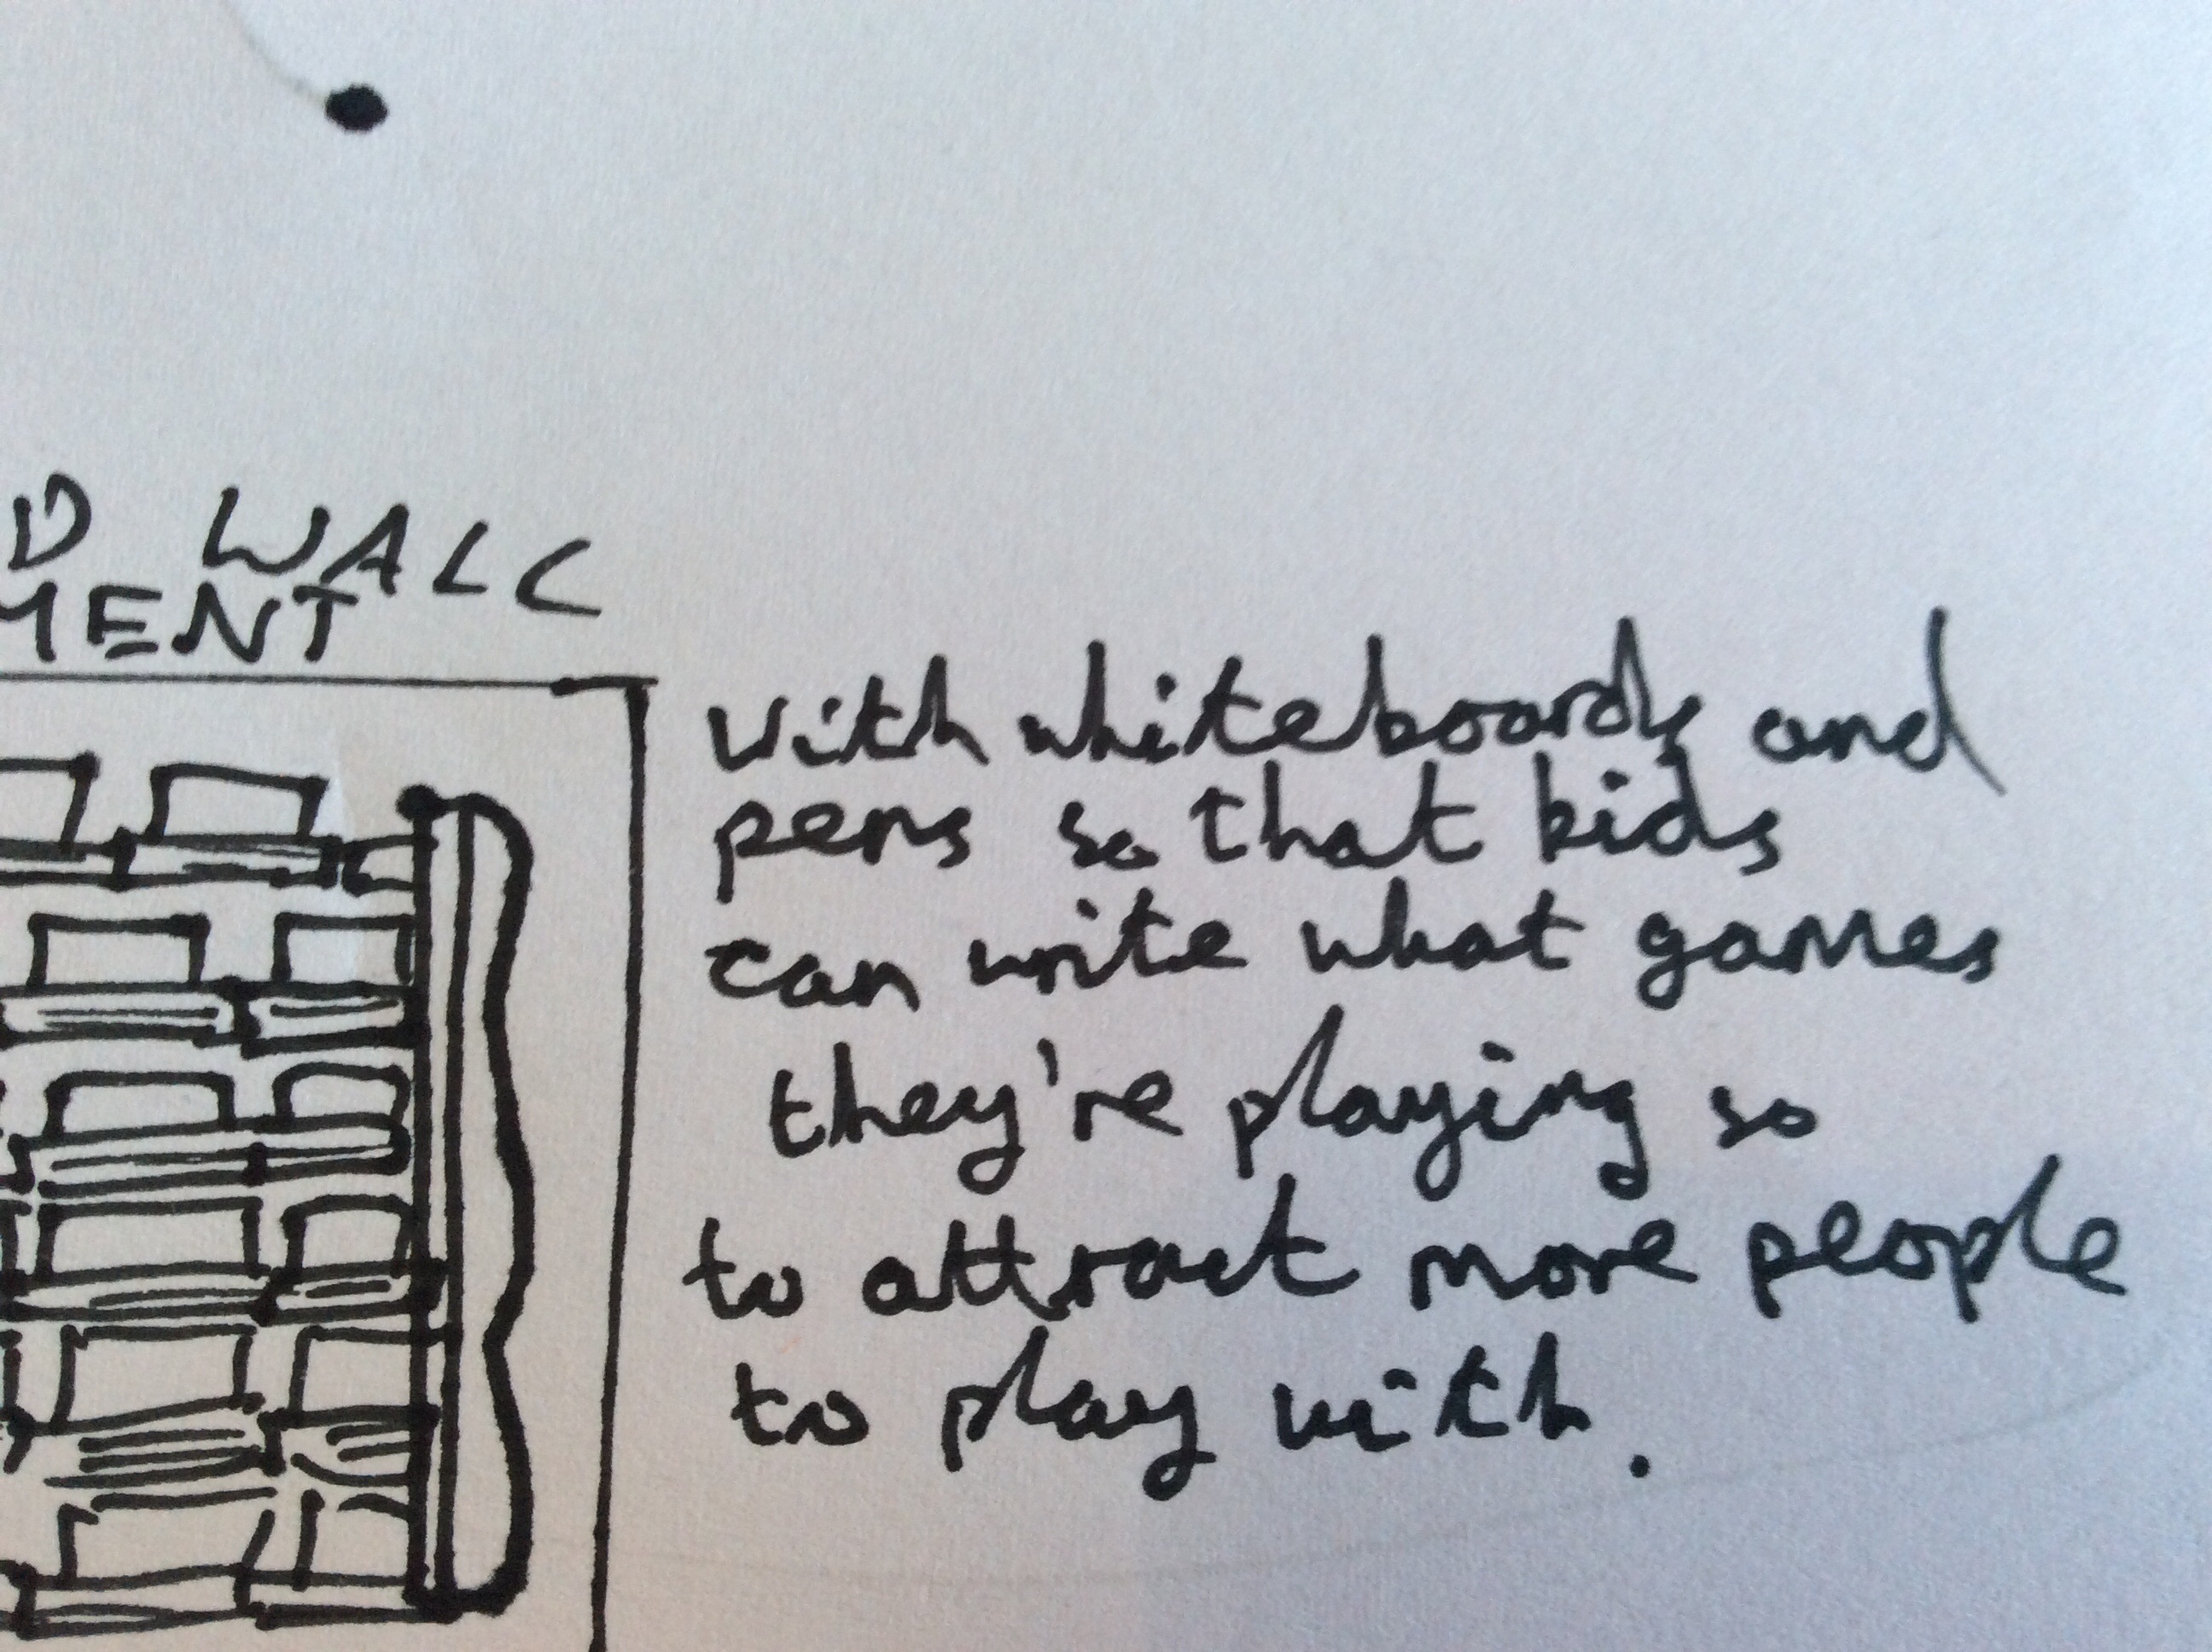 D WALL
MENT
with whiteboards and
pens so that kids
can write what games
they're playing so
to attract more people
to play with.